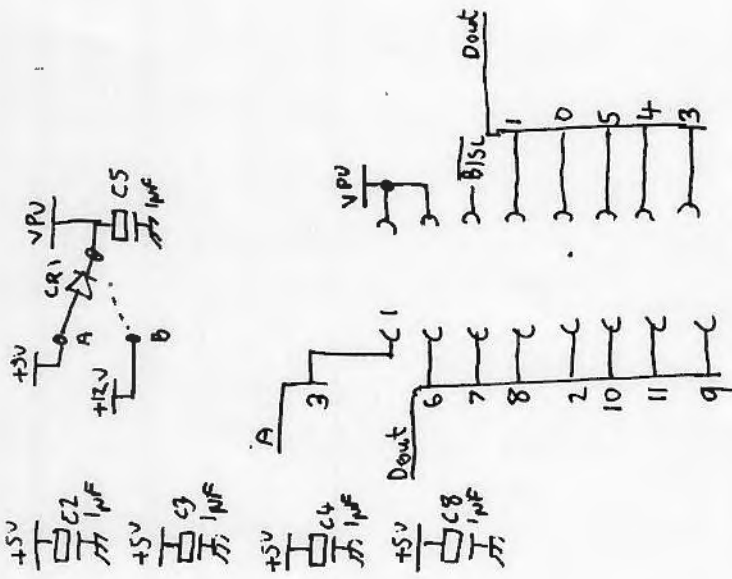 +5V
C2
1µF
+5V
C3
1µF
+5V
C4
1µF
+5V
C8
1µF
+5V
A
CR1
VPU
C5
1µF
+12V
B
A
3
1
Dout
6
7
8
2
10
11
9
VPU
B/SL
Dout
1
0
5
4
3